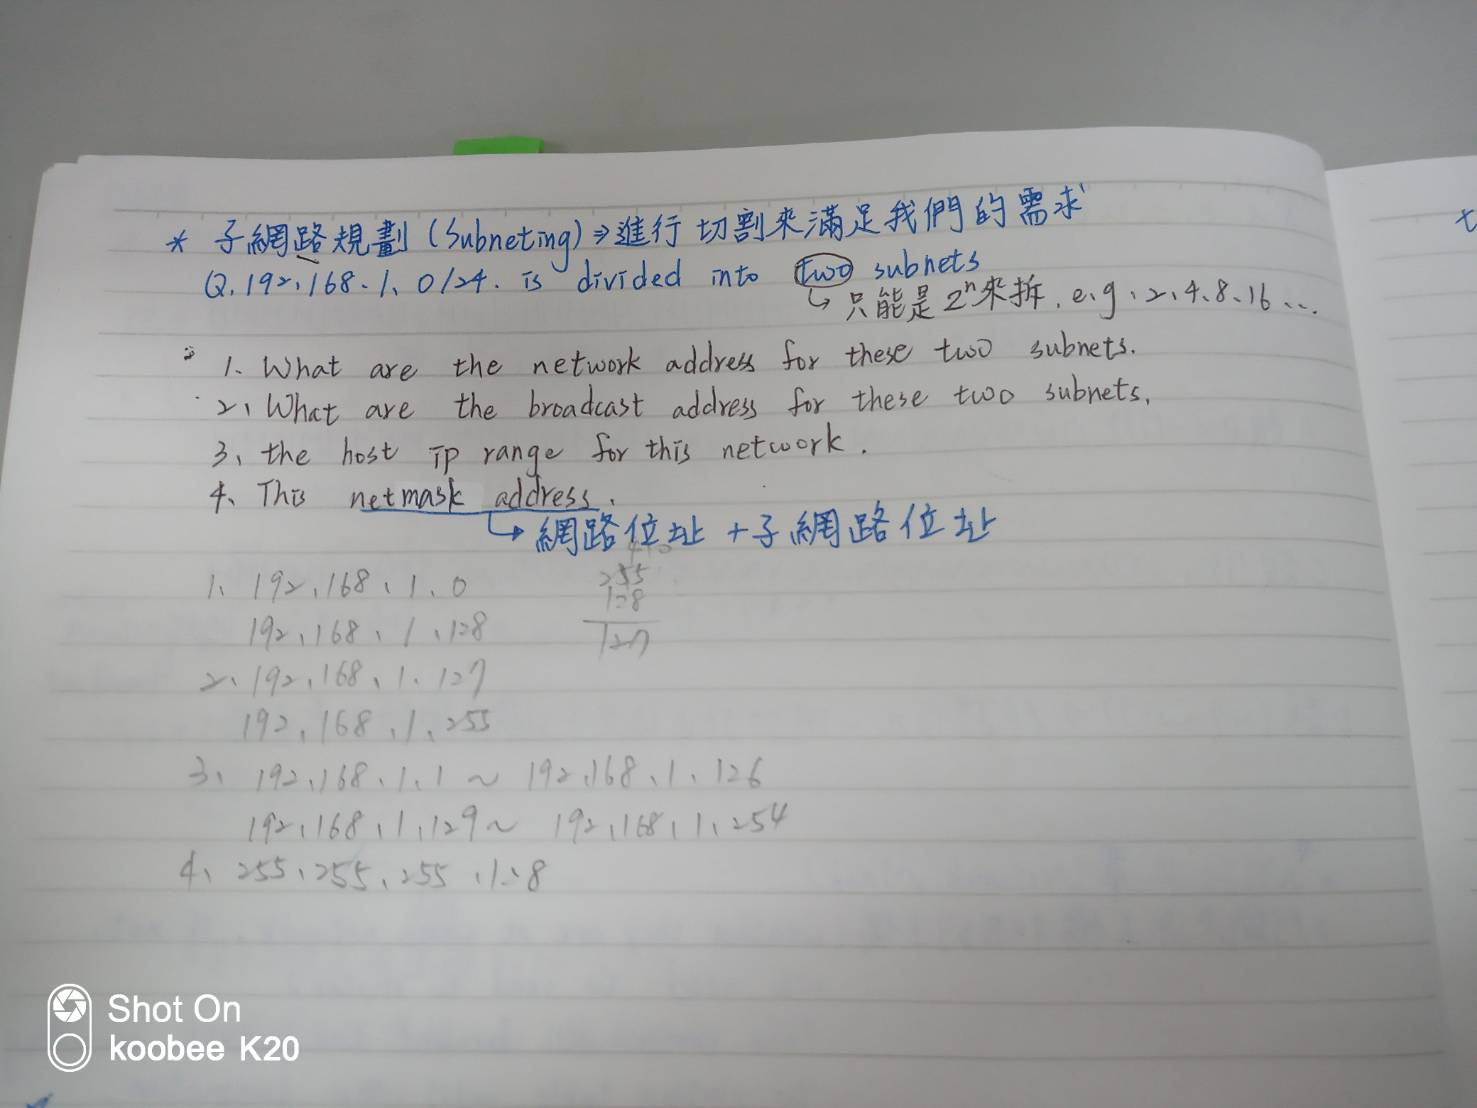 * 子網路規劃 (Subneting) ⇒ 進行切割來滿足我們的需求
Q. 192.168.1.0/24. is divided into two subnets
↳ 只能是 2ⁿ來拆. e.g. 2.4.8.16 ...
1. What are the network address for these two subnets.
2. What are the broadcast address for these two subnets.
3. the host ip range for this network.
4. This netmask address.
↳ 網路位址 + 子網路位址
1. 192.168.1.0
255
128
127
192.168.1.128
2. 192.168.1.127
192.168.1.255
3. 192.168.1.1 ~ 192.168.1.126
192.168.1.129 ~ 192.168.1.254
4. 255.255.255.128
Shot On
koobee K20